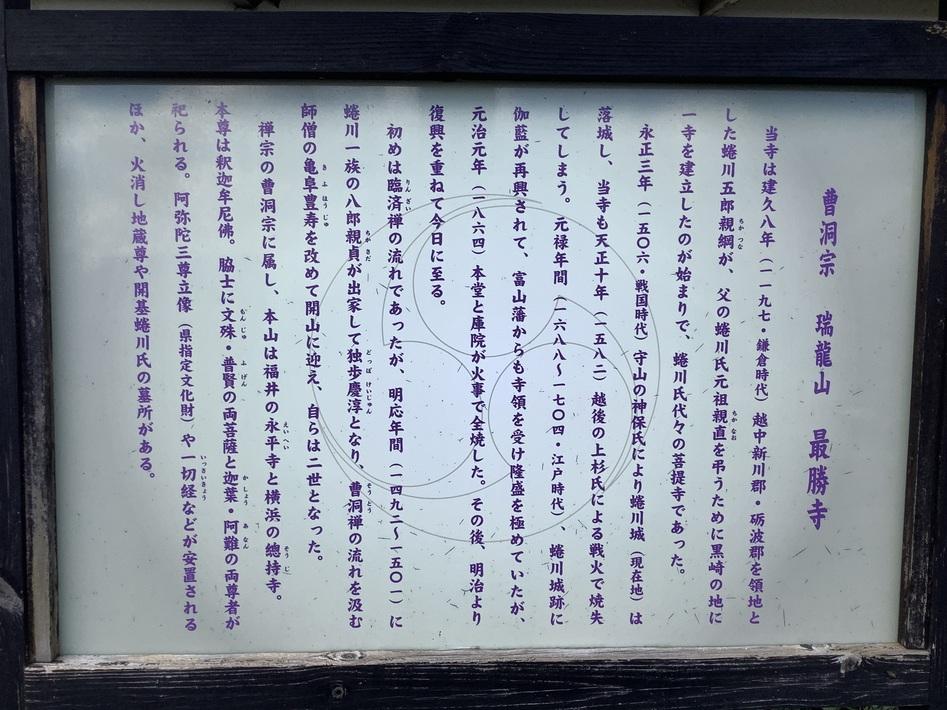 曹洞宗　瑞龍山　最勝寺
当寺は建久八年（一一九七・鎌倉時代）越中新川郡・砺波郡を領地と
した蜷川五郎親綱が、父の蜷川氏元祖親直を弔うために黒崎の地に
一寺を建立したのが始まりで、蜷川氏代々の菩提寺であった。
永正三年（一五〇六・戦国時代）守山の神保氏により蜷川城（現在地）は
落城し、当寺も天正十年（一五八二）越後の上杉氏による戦火で焼失
してしまう。元禄年間（一六八八～一七〇四・江戸時代）、蜷川城跡に
伽藍が再興されて、富山藩からも寺領を受け隆盛を極めていたが、
元治元年（一八六四）本堂と庫院が火事で全焼した。その後、明治より
復興を重ねて今日に至る。
初めは臨済禅の流れであったが、明応年間（一四九二～一五〇一）に
蜷川一族の八郎親貞が出家して独歩慶淳となり、曹洞禅の流れを汲む
師僧の亀阜豊寿を改めて開山に迎え、自らは二世となった。
禅宗の曹洞宗に属し、本山は福井の永平寺と横浜の總持寺。
本尊は釈迦牟尼佛。脇士に文殊・普賢の両菩薩と迦葉・阿難の両尊者が
祀られる。阿弥陀三尊立像（県指定文化財）や一切経などが安置される
ほか、火消し地蔵尊や開基蜷川氏の墓所がある。